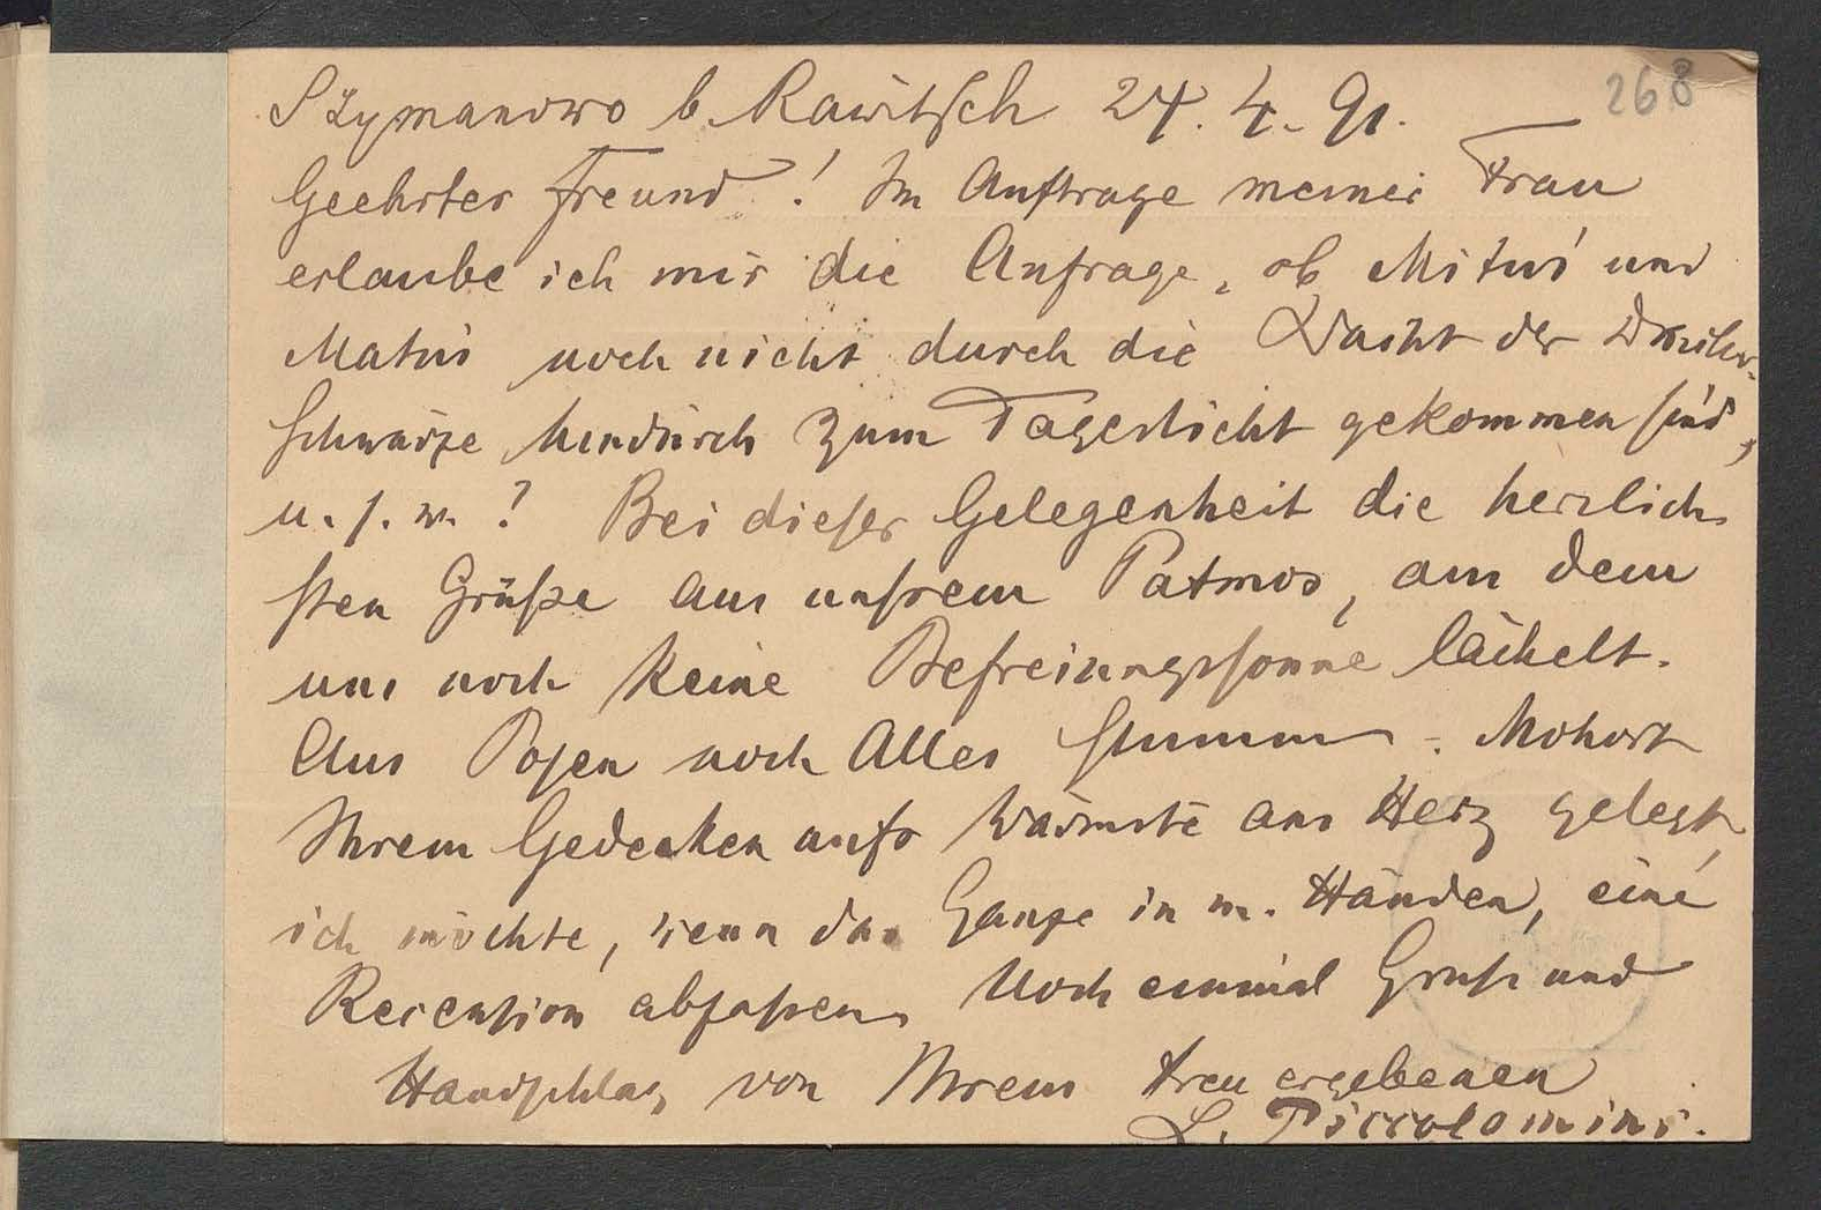 268
Szymanowo b. Rawitsch 24. 4. 91.
Geehrter Freund! Im Auftrage meiner Frau
erlaube ich mir die Anfrage, ob Mituś und
Matuś noch nicht durch die Nacht der Drucker-
schwärze hindurch zum Tageslicht gekommen sind,
u. s. w.? Bei dieser Gelegenheit die herzlich-
sten Grüße aus unsrem Patmos, am dem
uns noch keine Befreiungssonne lächelt.
Aus Posen noch Alles stumm. Mohort
Ihrem Gedenken aufs Wärmste ans Herz gelegt,
ich möchte, wenn das Ganze in m. Händen, eine
Recension abfassen. Noch einmal Gruß und
Handschlag von Ihrem treu ergebenen
L. Piccolomini.